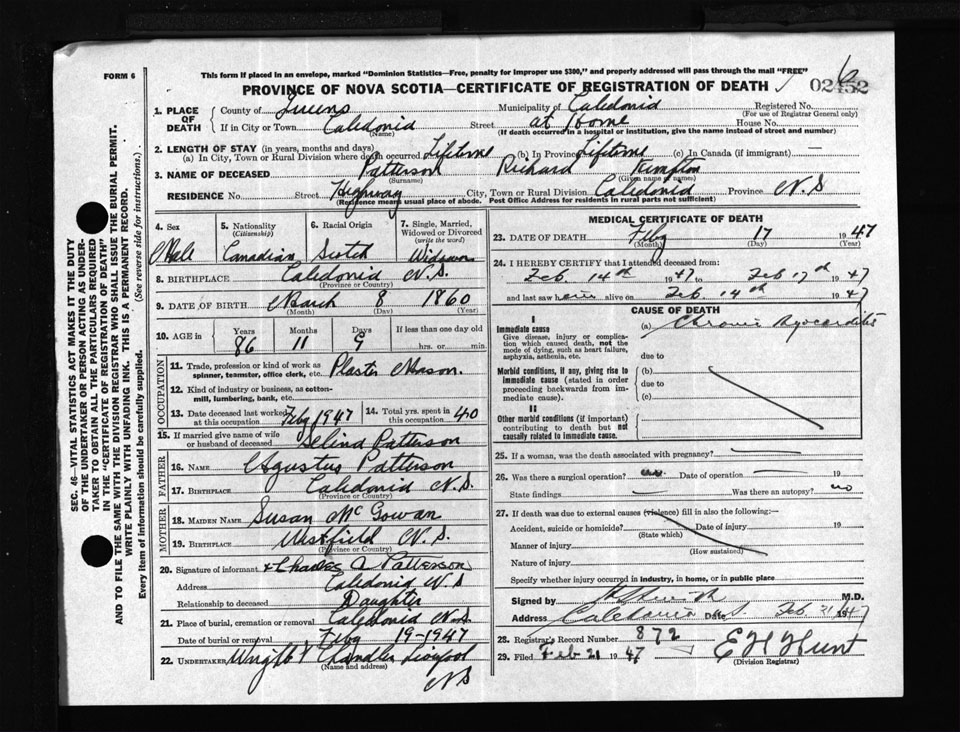 FORM 6
This form if placed in an envelope, marked "Dominion Statistics—Free, penalty for improper use $300," and properly addressed will pass through the mail "FREE"
PROVINCE OF NOVA SCOTIA—CERTIFICATE OF REGISTRATION OF DEATH 6 02452
1. PLACE OF DEATH County of Queens Municipality of Caledonia Registered No.
(For use of Registrar General only)
If in City or Town Caledonia Street at Home House No.
(Name) (If death occurred in a hospital or institution, give the name instead of street and number)
2. LENGTH OF STAY (in years, months and days)
(a) In City, Town or Rural Division where death occurred Lifetime (b) In Province Lifetime (c) In Canada (if immigrant) —
3. NAME OF DECEASED Patterson Richard Kempton
(Surname) (Given name or names)
RESIDENCE No. Street Highway City, Town or Rural Division Caledonia Province N.S
(Residence means usual place of abode. Post Office Address for residents in rural parts not sufficient)
4. Sex 5. Nationality (Citizenship) 6. Racial Origin 7. Single, Married, Widowed or Divorced (write the word)
Male Canadian Scotch Widower
8. BIRTHPLACE Caledonia N.S.
(Province or Country)
9. DATE OF BIRTH March 8 1860
(Month) (Day) (Year)
10. AGE in Years Months Days If less than one day old
86 11 9 hrs. or min.
11. Trade, profession or kind of work as spinner, teamster, office clerk, etc. Plaster Mason.
12. Kind of industry or business, as cotton-mill, lumbering, bank, etc.
OCCUPATION
13. Date deceased last worked at this occupation Feby 1947 14. Total yrs. spent in this occupation 40
15. If married give name of wife or husband of deceased Selina Patterson
FATHER
16. NAME Agustus Patterson
17. BIRTHPLACE Caledonia N.S.
(Province or Country)
MOTHER
18. MAIDEN NAME Susan McGowan
19. BIRTHPLACE Westfield N.S.
(Province or Country)
20. Signature of informant x Charles A Patterson
Address Caledonia N S
Relationship to deceased Daughter
21. Place of burial, cremation or removal Caledonia N.S.
Date of burial or removal Feby 19-1947
22. UNDERTAKER Wright & Chandler Liverpool
(Name and address)
N S
MEDICAL CERTIFICATE OF DEATH
23. DATE OF DEATH Feby 17 1947
(Month) (Day) (Year)
24. I HEREBY CERTIFY that I attended deceased from:
Feb 14th 1947 to Feb 17th 1947
and last saw him alive on Feb. 14th 1947
CAUSE OF DEATH
I
Immediate cause (a) Chronic Myocarditis
Give disease, injury or complication which caused death, not the mode of dying, such as heart failure, asphyxia, asthenia, etc.
due to
Morbid conditions, if any, giving rise to immediate cause (stated in order proceeding backwards from immediate cause).
(b)
due to
(c)
II
Other morbid conditions (if important) contributing to death but not causally related to immediate cause.
25. If a woman, was the death associated with pregnancy? —
26. Was there a surgical operation? no Date of operation — 19
State findings — Was there an autopsy? no
27. If death was due to external causes (violence) fill in also the following:—
Accident, suicide or homicide? Date of injury 19
(State which)
Manner of injury
(How sustained)
Nature of injury
Specify whether injury occurred in industry, in home, or in public place
Signed by M.D.
Address Caledonia N.S. Date Feb 21 1947
28. Registrar's Record Number 872
29. Filed Feb 21 1947 E H Hunt
(Division Registrar)
SEC. 46—VITAL STATISTICS ACT MAKES IT THE DUTY
OF THE UNDERTAKER OR PERSON ACTING AS UNDER-
TAKER TO OBTAIN ALL THE PARTICULARS REQUIRED
IN THE "CERTIFICATE OF REGISTRATION OF DEATH"
AND TO FILE THE SAME WITH THE DIVISION REGISTRAR WHO SHALL ISSUE THE BURIAL PERMIT.
WRITE PLAINLY WITH UNFADING INK. THIS IS A PERMANENT RECORD.
Every item of information should be carefully supplied. (See reverse side for instructions.)